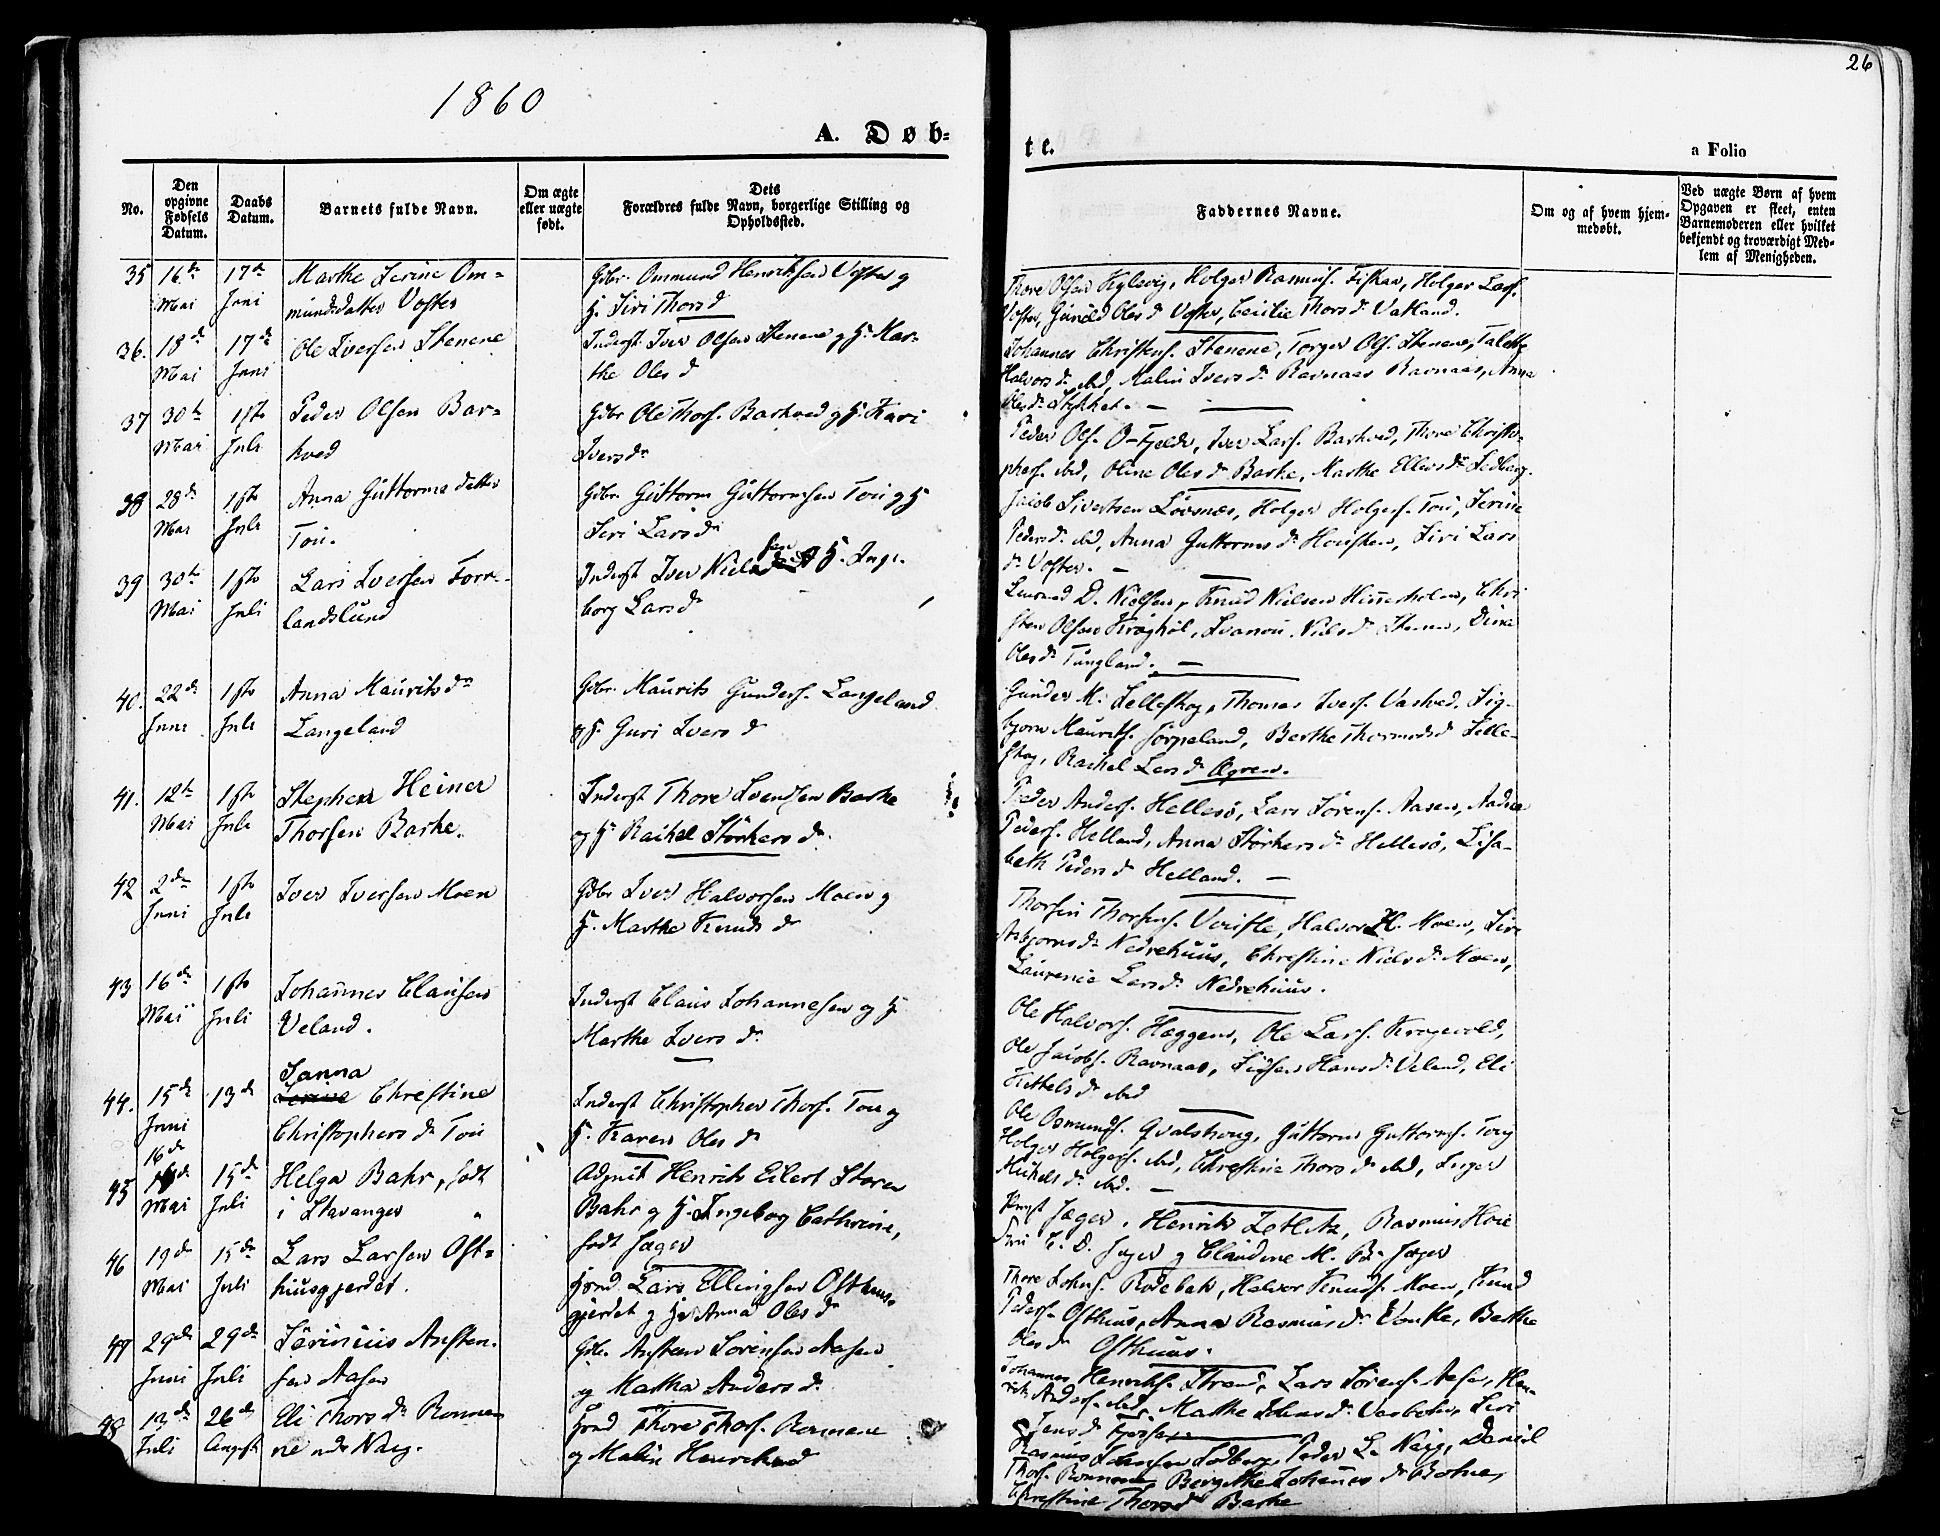 1860
26
A. Døb=
te.
a Folio
No.
Den opgivne Fødsels Datum.
Daabs Datum.
Barnets fulde Navn.
Om ægte eller uægte født.
Dets Forældres fulde Navn, borgerlige Stilling og Opholdssted.
Faddernes Navne.
Om og af hvem hjemmedøbt.
Ved uægte Børn af hvem Opgaven er skeet, enten Barnemoderen eller hvilket bekjendt og troværdigt Medlem af Menigheden.
35 16de 17de Marthe Serine Om=
Mai Juni mundsdatter Voster
Gbr. Ommund Henriksen Voster og
H. Siri Thorsd
Thore Olsen Kylevig, Holger Rasmus. Fisker, Holger Lars.
Voster, Gunild Olesd Voster, Cecilie Thorsd. Vatland.
36. 18de 17de Ole Iversen Stenene
Mai Juni
Inderst Iver Olsen Stenene og H. Mar=
the Olesd
Johannes Christens. Stenene, Torger Ols. Stenene, Talette
Halvorsd. ibd, Malin Iversd. Ravnaas Ravnaas, Anna
Olesd.
37 30te 1ste Peder Olsen Bar=
Mai Juli kved
Gbr Ole Thors. Barkved og H. Kari
Iversdr
Peder Ols. Ø-Fjelde, Iver Lars. Barkved, Thore Christo=
phers. ibd, Oline Olesd Barke, Marthe Ellersdr Sedberg.
38 28de 1ste Anna Guttormsdatter
Mai Juli Tou.
Gbr. Guttorm Guttormsen Tou og H
Siri Larsdr
Jacob Sivertsen Lövsnæs, Holger Holgers. Tou, Serine
Pedersd. ibd, Anna Guttormsd. Housken, Siri Lars
dr Voster.
39 30te 1ste Lars Iversen Torr-
Mai Juli landslund
Inderst Iver Nielssen og H. Inge-
borg Larsdr
Lensmd D. Nielsen, Knud Nielsen Hinnerholm, Chri
sten Olsen Kroghöl, Nielsdr Stenene,
Olesdr Tungland.
40. 22de 1ste Anna Mauritsdr
Juni Juli Langeland
Gbr. Maurits Gunders. Langeland
og H. Guri Iversd
Gunder M. Selleskog, Thomas Ivers. Vastved, Sig-
bjørn Maurits. Jørpeland, Berthe Thormodsd Selle-
skog, Rachel Larsdr
41. 12te 1ste Stephen Heiner
Mai Juli Thorsen Barke.
Inderst Thore Svendsen Barke
og H. Rachel Störkersdr.
Peder Anders. Hellesö, Lars Sörens. Aasen, Andrea
Peders. Helland, Anna Störkersdr Hellesö, Lisa-
beth Pedersd Helland.
42 2den 1ste Iver Iversen Moen
Juni Juli
Gbr Iver Halvorsen Moen og
H. Marthe Knudsd
Thorsen Thorsens. Halvor H. Moen, Siri
Asbjornsdr Nedrehuus, Christine Nielsd. Moen,
Laurenia Larsd. Nedrehuus.
43 16de 1ste Johannes Clausen
Mai Juli Veland.
Inderst Claus Johannesen og H
Marthe Iversdr
Ole Halvors. Haggen, Ole Lars.
Ole Jacobs. Ravnaas, Hansd. Veland, Eli
Kittelsdr ibd
44. 15de 13de Janna Christine
Juni Christophersdr Tou
Inderst Christopher Thors. Tou og
H. Karen Olesdr
Ole Osmunds. Guttorm Guttorms. Tou
Holger Holgers. ibd, Christine Thorsd ibd, Inger
Mikelsdr ibd.
45 16de 15de Helga Bahr, født
Mai Juli i Stavanger
Adjunkt Henrik Eilert Storm
Bahr og H. Ingeborg Cathrine,
født Jæger
Jæger, Henrik Zetlitz, Rasmus
Jæger og Claudine M. B. Jæger
46 19de 15de Lars Larsen Ost=
Mai Juli huusgjerdet.
Hmd Lars Ellingsen Osthuus-
gjerdet og H. Anna Olesd
Thore Johns. Rodebak, Halvor Knuds. Moen, Knud
Peders. Osthuus, Anna Rasmusd Berthe
Olesd Osthuus.
47 29de 29de Sörinius Austen-
Juni Juli sen Aasen
Gbr. Austen Sörensen Aasen
og Martha Andersd.
Johannes Henriks. Strand, Lars Sörens. Aasen, Hen-
rik Anders. ibd, Marthe Siri
Jensd
48 13de 26de Eli Thorsdr Ronne-
Juli August
Hmd Thore Thors. Ronnene
og Malin Henriksd
Rasmus Johnsen Peder L. Daniel
Thors. Ronnene Bergithe Johannesdr
Christine Thorsd Barke